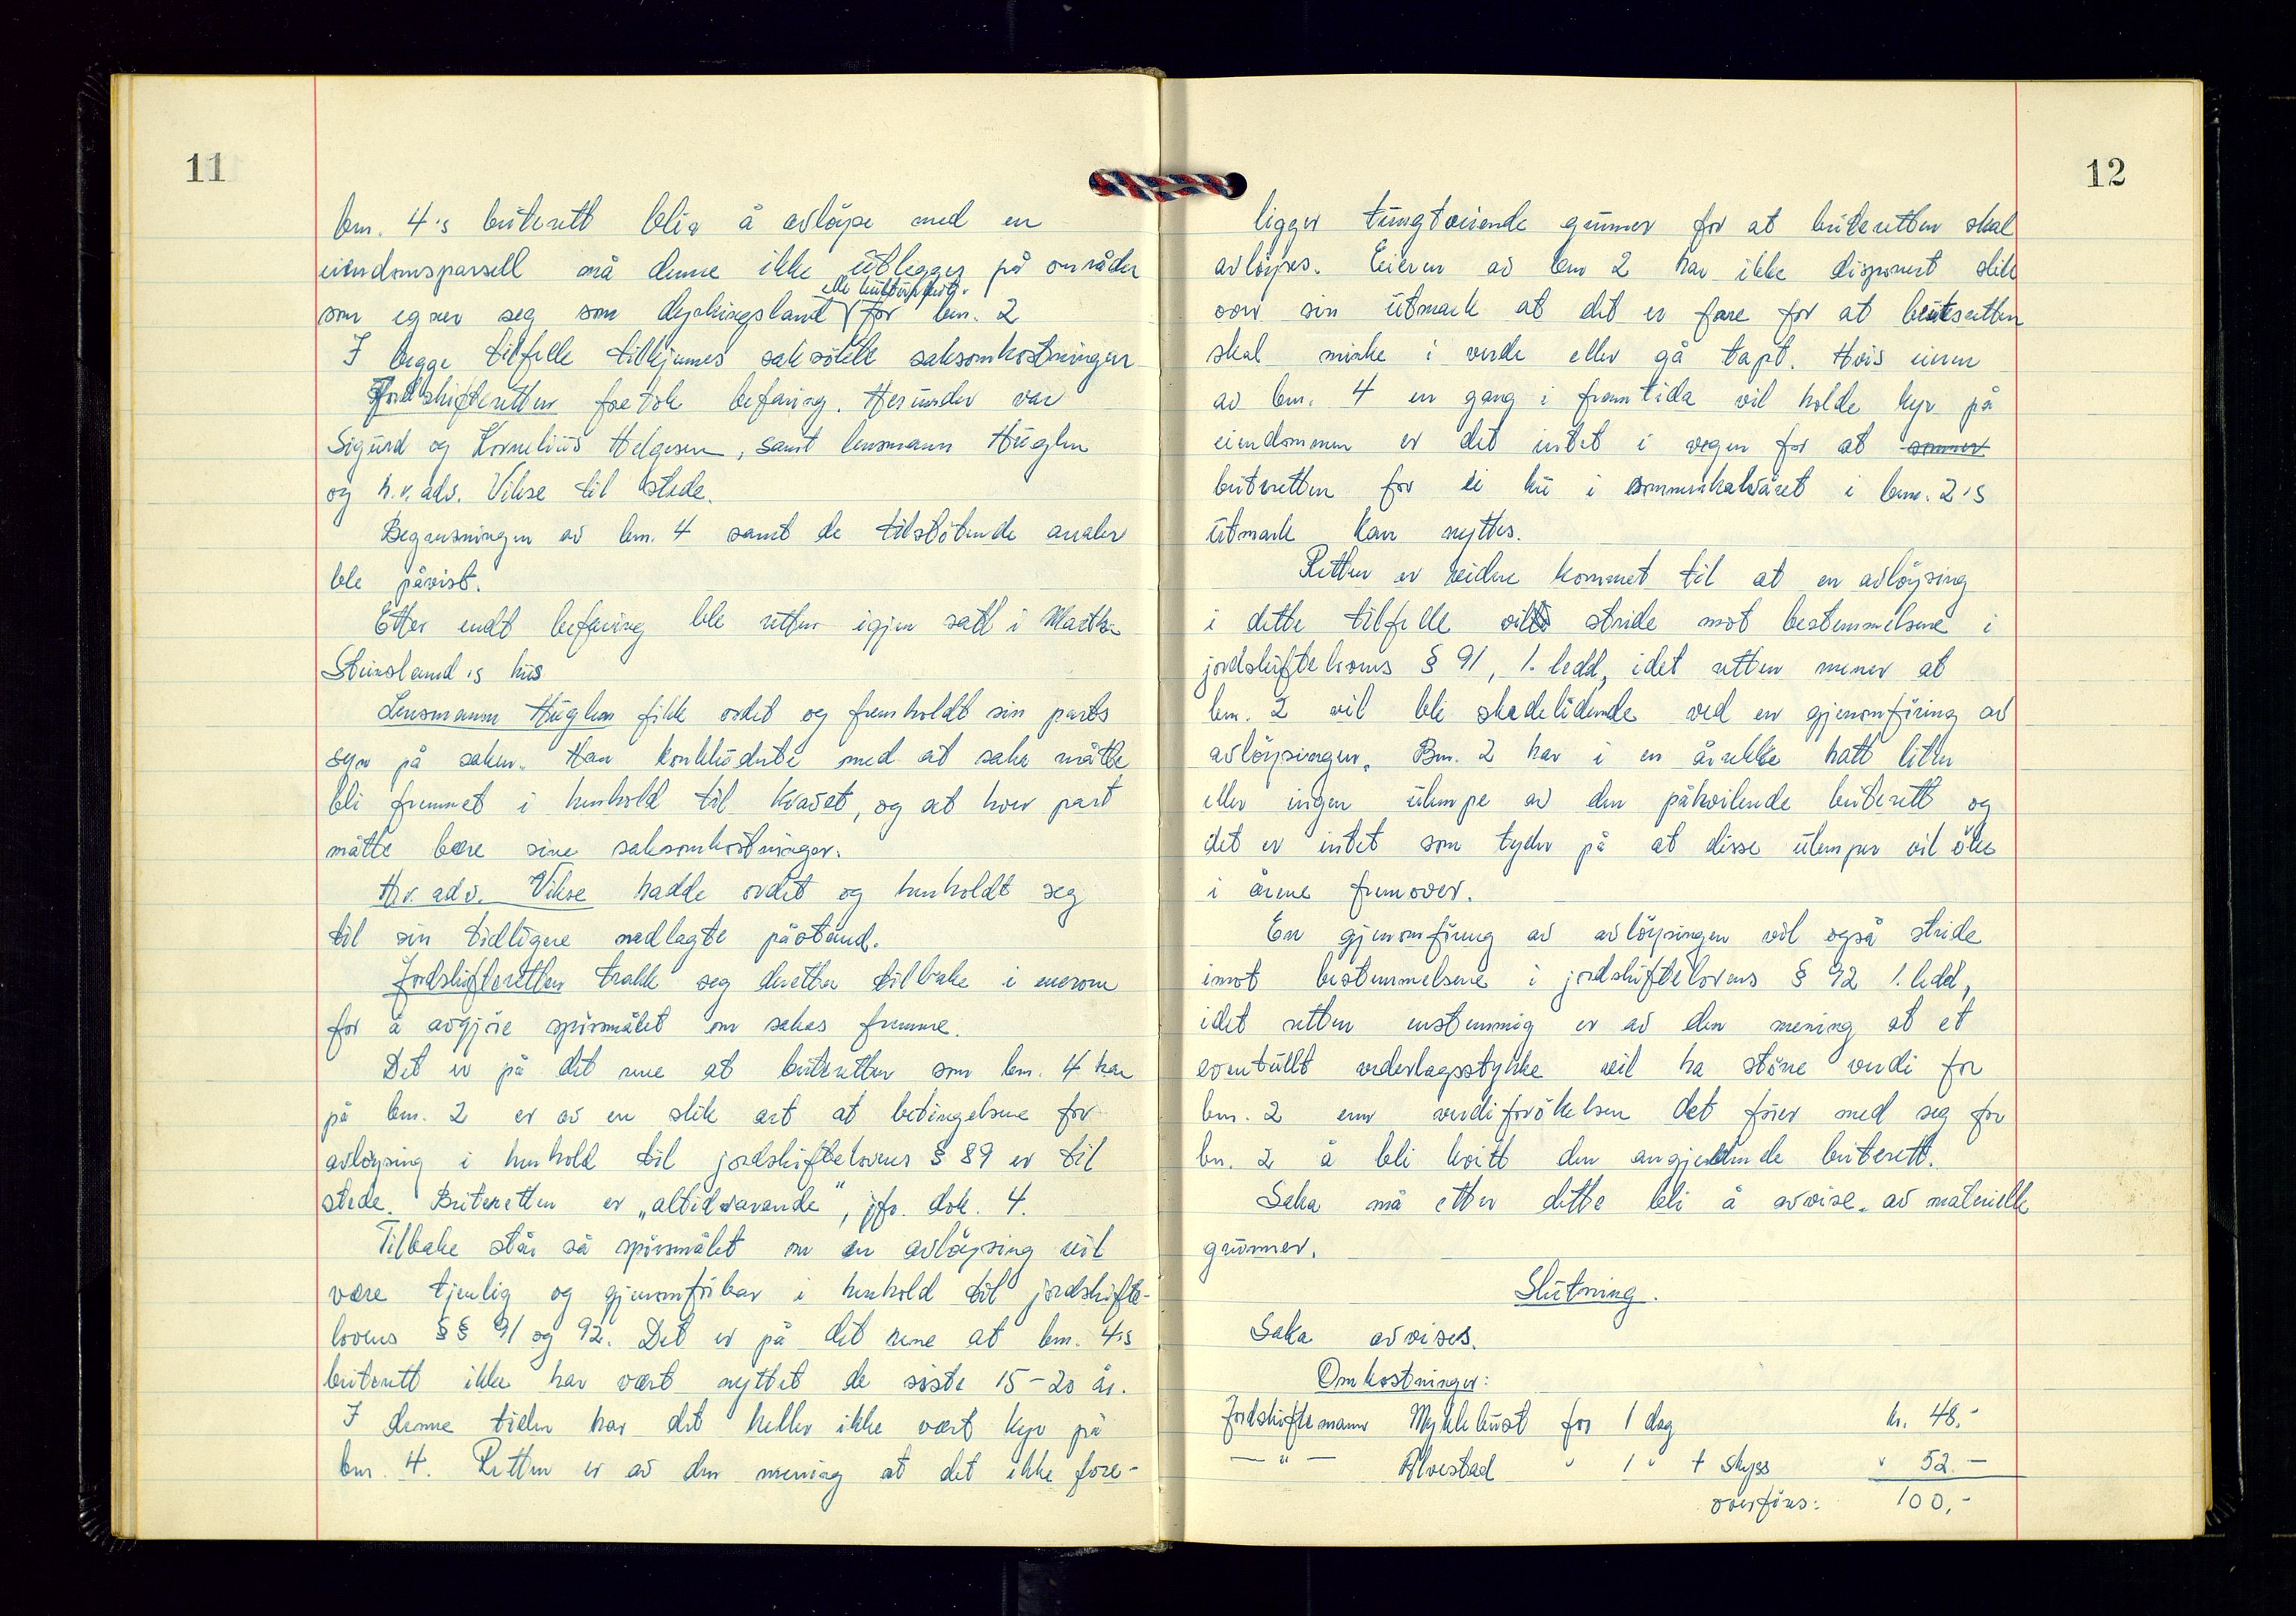 11
bnr. 4's beiterett blir å avlöyse med en
eiendomsparsell må denne ikke utlegges på områder
elle kulturbeite.
som egner seg som dyrkingsland for bnr. 2
I begge tilfelle tilkjennes saksökte saksomkostninger
Jordskifteretten foretok befaring. Herunder var
Sigurd og Kornelius Helgesen, samt lensmann Huglen
og h.r.adv. Vikse til stede.
Begrensningen av bnr. 4 samt de tilstötende arealer
ble påvist.
Etter endt befaring ble retten igjen satt i Martha
Steinsland's hus
Lensmann Huglen fikk ordet og fremholdt sin parts
syn på saken. Han konkluderte med at saka måtte
bli fremmet i henhold til kravet, og at hver part
måtte bære sine saksomkostninger.
H.r. adv. Vikse hadde ordet og henholdt seg
til sin tidligere nedlagte påstand.
Jordskifteretten trakk seg deretter tilbake i enerom
for å avgjöre spörsmålet om sakas fremme.
Det er på det rene at beiteretten som bnr. 4 har
på bnr. 2 er av en slik art at betingelsene for
avlöysing i henhold til jordskiftelovens § 89 er til
stede. Beiteretten er „altidvarande", jfr. dok. 4.
Tilbake står så spörsmålet om en avlöysing vil
være tjenlig og gjenomförbar i henhold til jordskifte-
lovens §§ 91 og 92. Det er på det rene at bnr. 4's
beiterett ikke har vært nyttet de siste 15-20 år.
I denne tiden har det heller ikke vært kyr på
bnr. 4. Retten er av den mening at det ikke fore-
12
ligger tungtveiende grunner for at beiteretten skal
avlöyses. Eieren av bnr 2 har ikke disponert slik
over sin utmark at det er fare for at beiteretten
skal minke i verde eller gå tapt. Hvis eieren
av bnr. 4 en gang i framtida vil holde kyr på
eiendommen er det intet i vegen for at sommer
beiteretten for ei ku i sommerhalvåret i bnr. 2's
utmark kan nyttes.
Retten er videre kommet til at en avlöysing
i dette tilfelle vil stride mot bestemmelsene i
jordskiftelovens § 91, 1. ledd, idet retten mener at
bnr. 2 vil bli skadelidende ved en gjenomföring av
avlöysingen. Bnr. 2 har i en årrekke hatt liten
eller ingen ulempe av den påhvilende beiterett og
det er intet som tyder på at disse ulemper vil öke
i årene fremover.
En gjenomföring av avlöysingen vil også stride
imot bestemmelsene i jordskiftelovens § 92 1. ledd,
idet retten enstemmig er av den mening at et
eventuellt vederlagsstykke vil ha större verdi for
bnr. 2 enn verdiforökelsen det förer med seg for
bn. 2 å bli kvitt den angjeldende beiterett.
Saka må etter dette bli å avvise av materielle
grunner.
Slutning.
Saka avvises.
Omkostninger:
Jordskiftemann Myklebust for 1 dag kr. 48.-
— " — Alvestad " 1 " + skyss " 52.—
overföres: 100,-